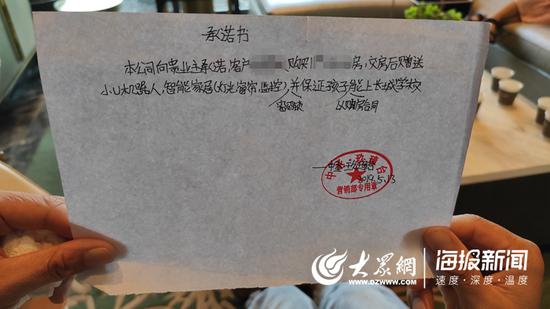 承诺书
本公司向贵业主承诺,客户 购买1 房,交房后赠送
小U机器人,智能家居(灯光窗帘,监控)并保证孩子能上长城学校
营销部专用章
2019.5.13
大众網
www.dzwww.com
海报新闻
速度·深度·温度